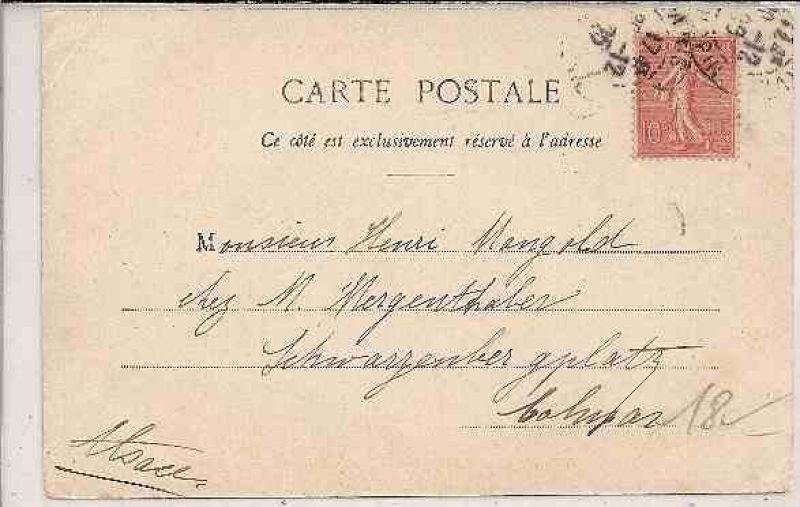 CARTE POSTALE
Ce côté est exclusivement réservé à l'adresse
10
Monsieur Henri Mangold
chez M. Mergenthaler
Schwarzenbergplatz
Colmar
Alsace